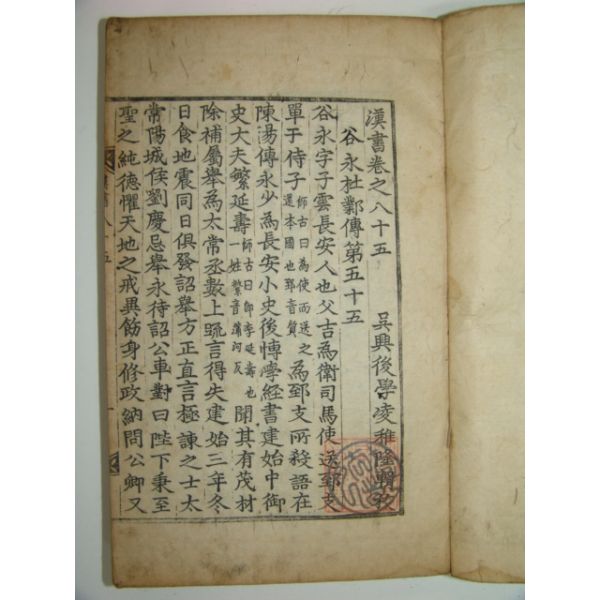 漢書卷之八十五 吳興後學凌稚隆輯校
谷永杜鄴傳第五十五
谷永字子雲長安人也父吉為衛司馬使送郅支
單于侍子師古曰為使而送之還本國也郅音質為郅支所殺語在
陳湯傳永少為長安小史後博學經書建始中御
史大夫繁延壽師古曰即李延壽也一姓繁音蒲河反聞其有茂材
除補屬舉為太常丞數上疏言得失建始三年冬
日食地震同日俱發詔舉方正直言極諫之士太
常陽城侯劉慶忌舉永待詔公車對曰陛下秉至
聖之純德懼天地之戒異飭身修政納問公卿又